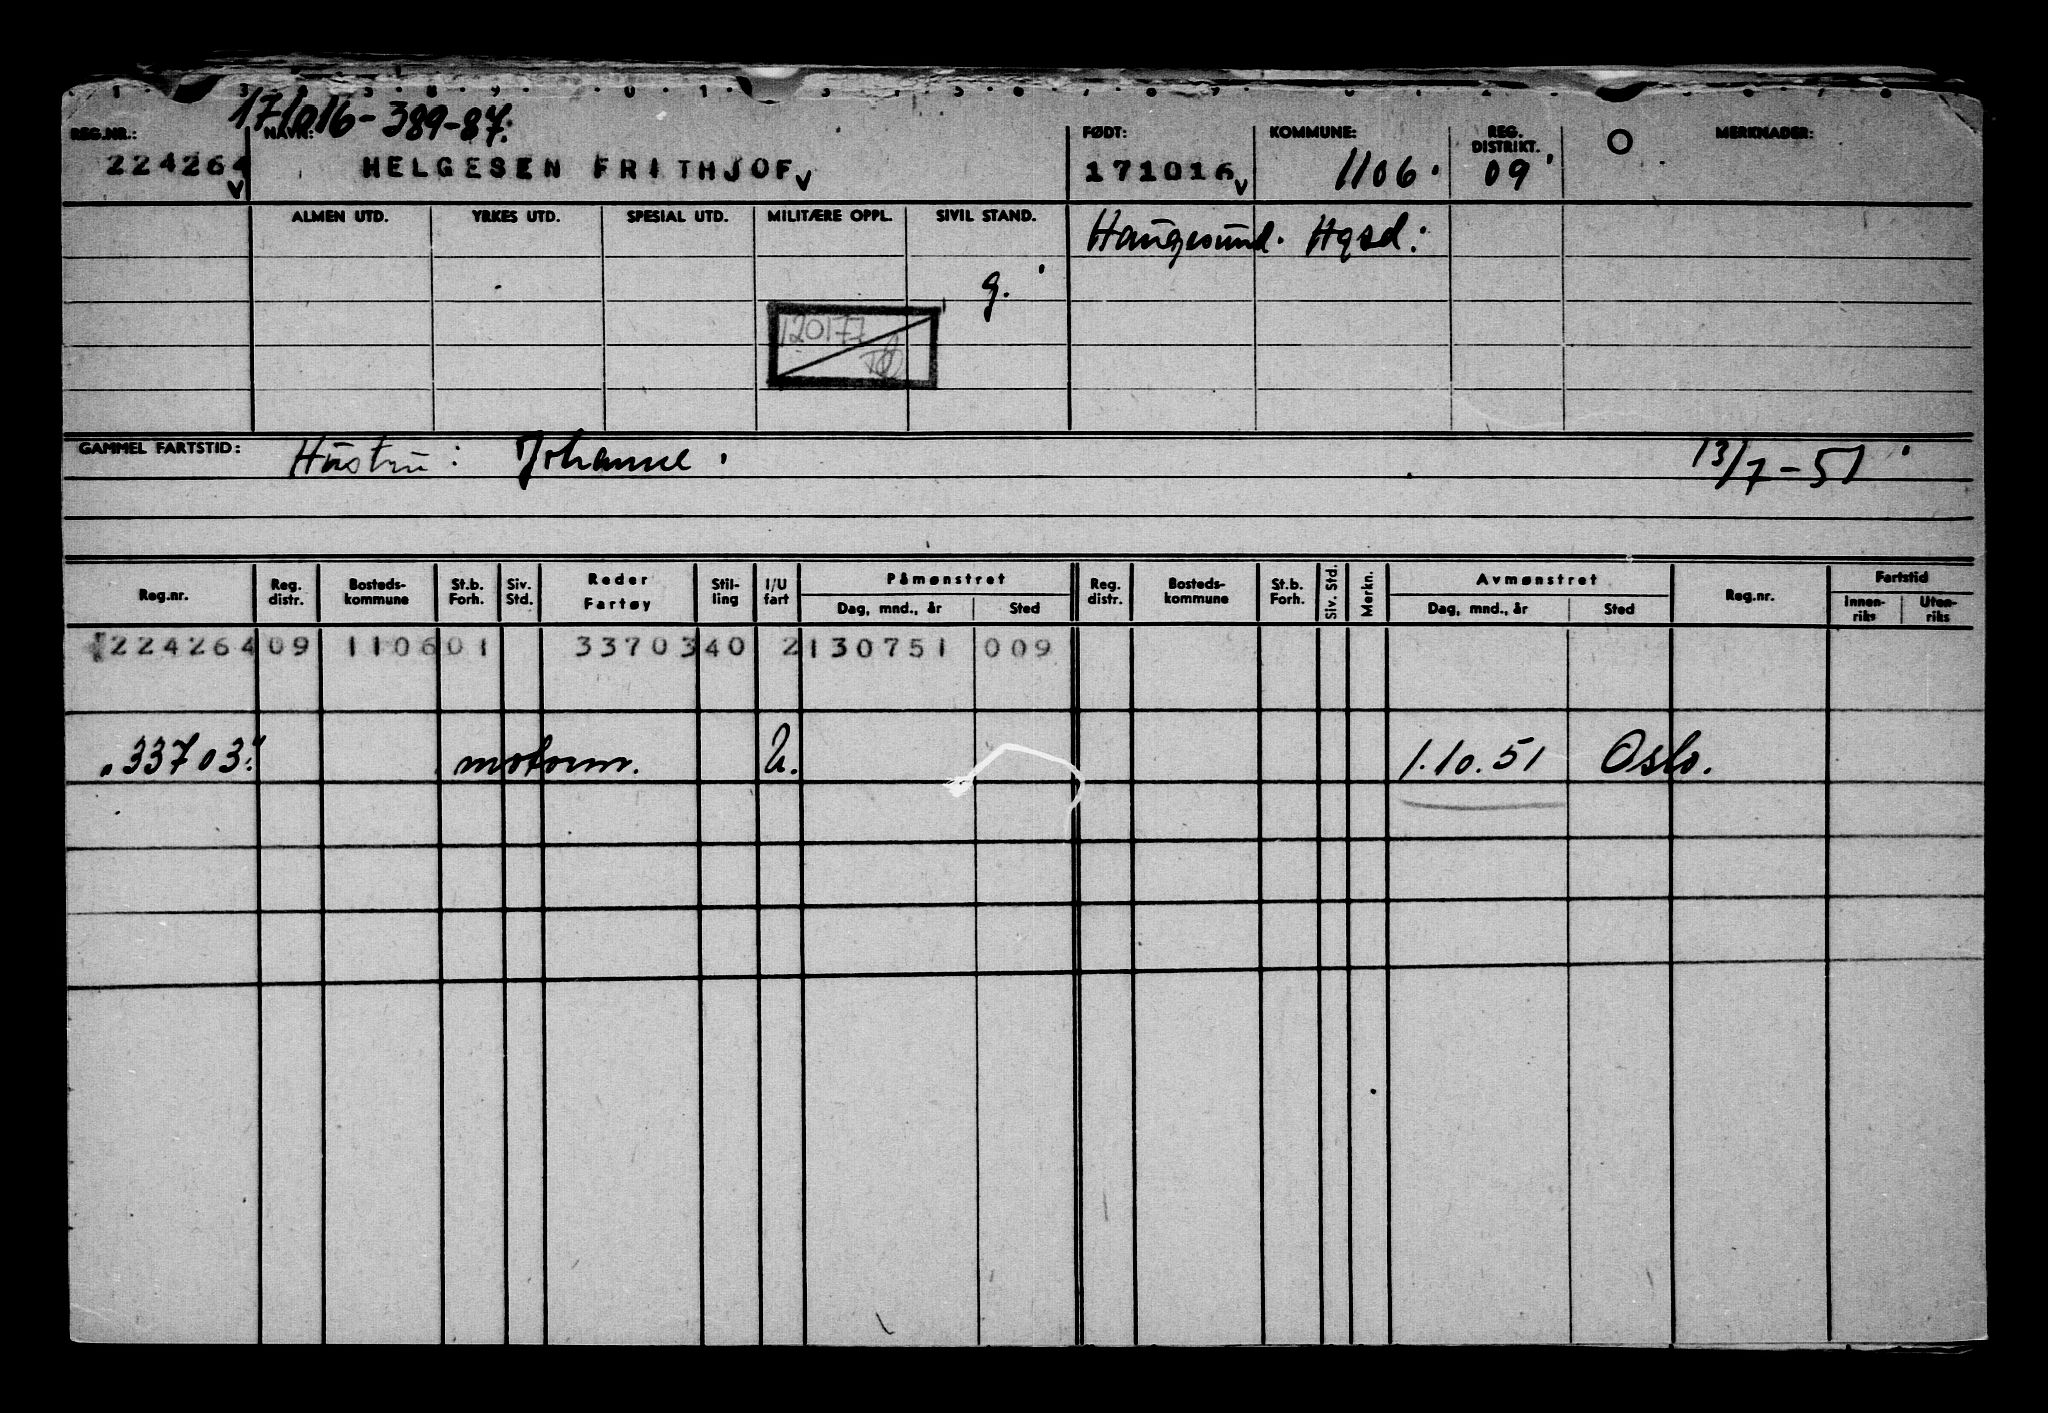 171016-389-87.
REG.NR.: NAVN: FØDT: KOMMUNE: REG. DISTRIKT. MERKNADER:
224264 HELGESEN FRITHJOF 171016 1106. 09
ALMEN UTD. YRKES UTD. SPESIAL UTD. MILITÆRE OPPL. SIVIL STAND. Haugesund. Hgsd.
g.
120177
GAMMEL FARTSTID: Hustru: Johanne. 13/7-51
Reg.nr. Reg. distr. Bosteds-kommune St.b. Forh. Siv. Std. Reder Fartøy Stil-ling I/U fart Påmønstret Reg. distr. Bosteds-kommune St.b. Forh. Siv. Std. Merkn. Avmønstret Reg.nr. Fartstid
Dag, mnd., år Sted Dag, mnd., år Sted Innen-riks Uten-riks
224264 09 1106 01 33703 40 2 130751 009
33703. motorm. U. 1.10.51 Oslo.